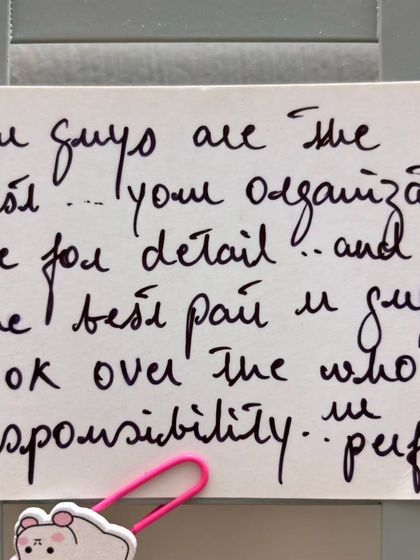 u guys are the
st ... your organiza
e for detail .. and
e best part u gu
ok over the who
sponsibility .. ur perf